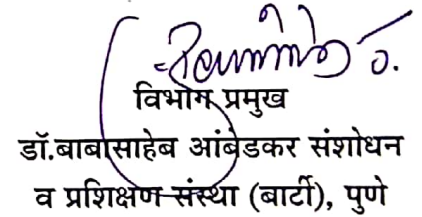 विभाग प्रमुख
डॉ.बाबासाहेब आंबेडकर संशोधन
व प्रशिक्षण संस्था (बार्टी), पुणे